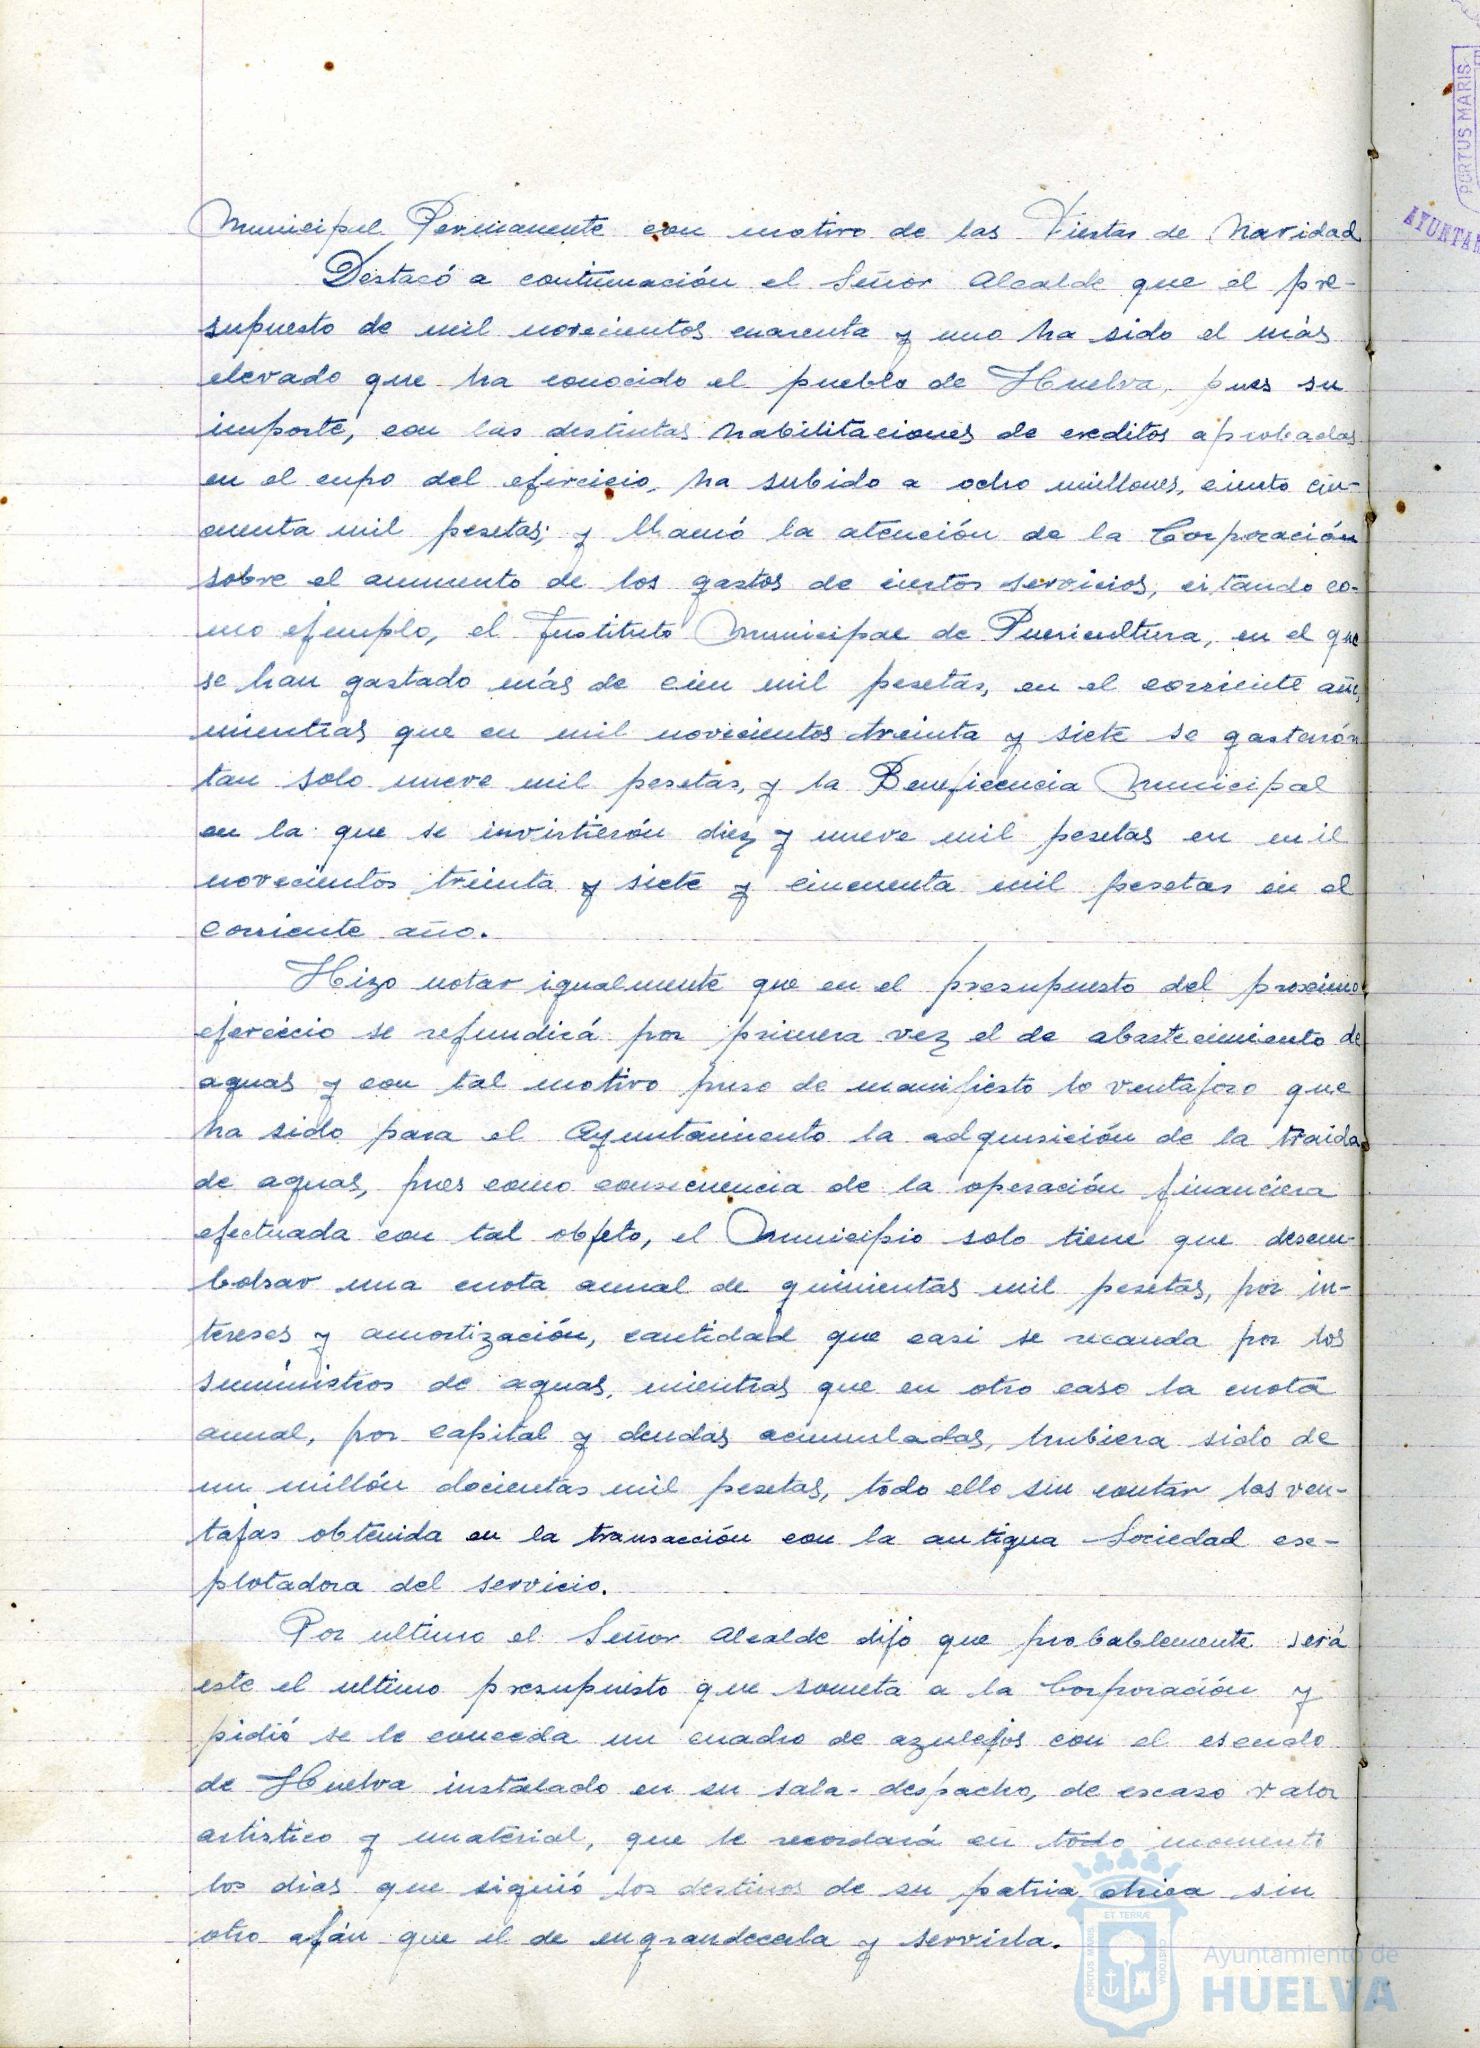 Municipal Permanente con motivo de las Fiestas de Navidad
Destacó a continuación el Señor Alcalde que el pre-
supuesto de mil novecientos cuarenta y uno ha sido el más
elevado que ha conocido el pueblo de Huelva, pues su
importe, con las distintas habilitaciones de creditos aprobadas
en el curso del ejercicio, ha subido a ocho millones, ciento cin-
cuenta mil pesetas; y llamó la atención de la Corporación
sobre el aumento de los gastos de ciertos servicios, citando co-
mo ejemplo, el Instituto Municipal de Puericultura, en el que
se han gastado más de cien mil pesetas, en el corriente año,
mientras que en mil novecientos treinta y siete se gastarón
tan solo nueve mil pesetas, y la Beneficencia Municipal
en la que se invirtierón diez y nueve mil pesetas en mil
novecientos treinta y siete y cincuenta mil pesetas en el
corriente año.
Hizo notar igualmente que en el presupuesto del proximo
ejercicio se refundirá por primera vez el de abastecimiento de
aguas y con tal motivo puso de manifiesto lo ventajoso que
ha sido para el Ayuntamiento la adquisición de la traida
de aguas, pues como consecuencia de la operación financiera
efectuada con tal objeto, el Municipio solo tiene que desem-
bolsar una cuota anual de quinientas mil pesetas, por in-
tereses y amortización, cantidad que casi se recauda por los
suministros de aguas, mientras que en otro caso la cuota
anual, por capital y deudas acumuladas, hubiera sido de
un millón docientas mil pesetas, todo ello sin contar las ven-
tajas obtenida en la transacción con la antigua Sociedad ex-
plotadora del servicio.
Por ultimo el Señor Alcalde dijo que probablemente será
este el ultimo presupuesto que someta a la Corporación y
pidió se le conceda un cuadro de azulejos con el escudo
de Huelva instalado en su sala-despacho, de escaso valor
artistico y material, que le recordará en todo momento
los dias que siguió los destinos de su patria chica sin
otro afán que el de engrandecerla y servirla.
PORTUS MARIS
AYUNTAM
PORTUS MARIS
ET TERRÆ
CUSTODIA
Ayuntamiento de
HUELVA